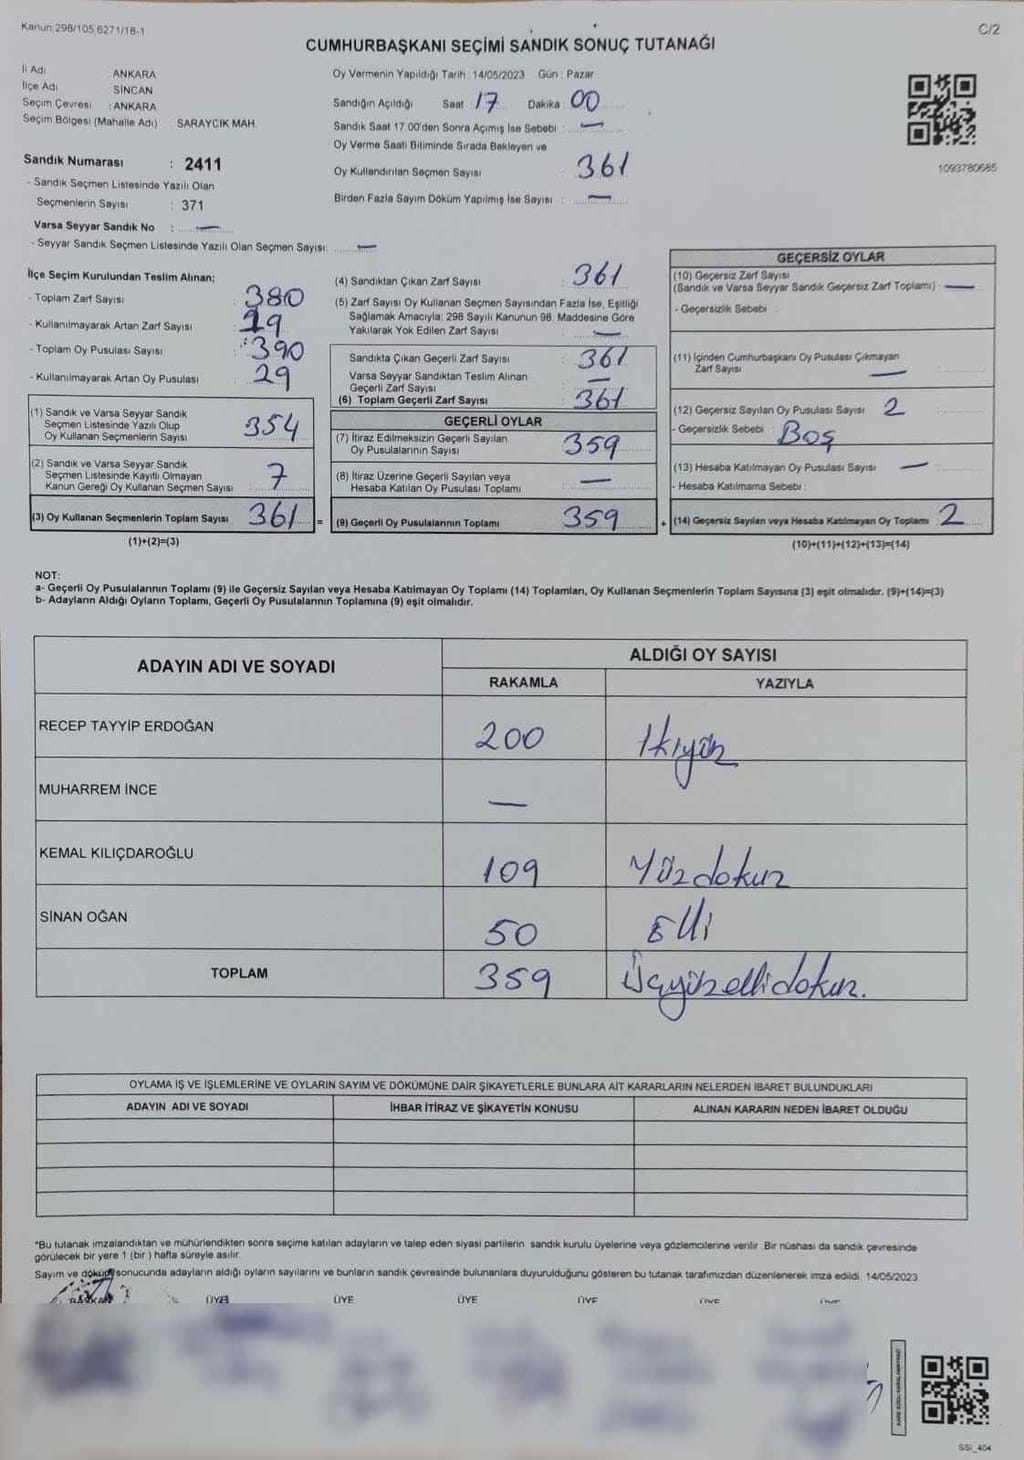 Kanun:298/105 6271/18-1
C/2
CUMHURBAŞKANI SEÇİMİ SANDIK SONUÇ TUTANAĞI
İl Adı : ANKARA
İlçe Adı : SİNCAN
Seçim Çevresi : ANKARA
Seçim Bölgesi (Mahalle Adı) : SARAYCIK MAH.
Sandık Numarası : 2411
- Sandık Seçmen Listesinde Yazılı Olan
Seçmenlerin Sayısı : 371
Varsa Seyyar Sandık No : —
- Seyyar Sandık Seçmen Listesinde Yazılı Olan Seçmen Sayısı: —
Oy Vermenin Yapıldığı Tarih : 14/05/2023 Gün : Pazar
Sandığın Açıldığı Saat 17 Dakika 00
Sandık Saat 17:00'den Sonra Açılmış İse Sebebi : —
Oy Verme Saati Bitiminde Sırada Bekleyen ve
Oy Kullandırılan Seçmen Sayısı 361
Birden Fazla Sayım Döküm Yapılmış İse Sayısı : —
1093780685
İlçe Seçim Kurulundan Teslim Alınan;
- Toplam Zarf Sayısı : 380
- Kullanılmayarak Artan Zarf Sayısı : 19
- Toplam Oy Pusulası Sayısı : 390
- Kullanılmayarak Artan Oy Pusulası : 29
(1) Sandık ve Varsa Seyyar Sandık
Seçmen Listesinde Yazılı Olup
Oy Kullanan Seçmenlerin Sayısı 354
(2) Sandık ve Varsa Seyyar Sandık
Seçmen Listesinde Kayıtlı Olmayan
Kanun Gereği Oy Kullanan Seçmen Sayısı 7
(3) Oy Kullanan Seçmenlerin Toplam Sayısı 361 =
(1)+(2)=(3)
(4) Sandıktan Çıkan Zarf Sayısı : 361
(5) Zarf Sayısı Oy Kullanan Seçmen Sayısından Fazla İse, Eşitliği
Sağlamak Amacıyla; 298 Sayılı Kanunun 98. Maddesine Göre
Yakılarak Yok Edilen Zarf Sayısı : —
Sandıkta Çıkan Geçerli Zarf Sayısı : 361
Varsa Seyyar Sandıktan Teslim Alınan
Geçerli Zarf Sayısı : —
(6) Toplam Geçerli Zarf Sayısı : 361
GEÇERLİ OYLAR
(7) İtiraz Edilmeksizin Geçerli Sayılan
Oy Pusulalarının Sayısı 359
(8) İtiraz Üzerine Geçerli Sayılan veya
Hesaba Katılan Oy Pusulası Toplamı : —
(9) Geçerli Oy Pusulalarının Toplamı 359 +
GEÇERSİZ OYLAR
(10) Geçersiz Zarf Sayısı
(Sandık ve Varsa Seyyar Sandık Geçersiz Zarf Toplamı) : —
- Geçersizlik Sebebi :
(11) İçinden Cumhurbaşkanı Oy Pusulası Çıkmayan
Zarf Sayısı —
(12) Geçersiz Sayılan Oy Pusulası Sayısı 2
- Geçersizlik Sebebi : Boş
(13) Hesaba Katılmayan Oy Pusulası Sayısı —
- Hesaba Katılmama Sebebi :
(14) Geçersiz Sayılan veya Hesaba Katılmayan Oy Toplamı : 2
(10)+(11)+(12)+(13)=(14)
NOT:
a- Geçerli Oy Pusulalarının Toplamı (9) ile Geçersiz Sayılan veya Hesaba Katılmayan Oy Toplamı (14) Toplamları, Oy Kullanan Seçmenlerin Toplam Sayısına (3) eşit olmalıdır. (9)+(14)=(3)
b- Adayların Aldığı Oyların Toplamı, Geçerli Oy Pusulalarının Toplamına (9) eşit olmalıdır.
ADAYIN ADI VE SOYADI
ALDIĞI OY SAYISI
RAKAMLA YAZIYLA
RECEP TAYYİP ERDOĞAN 200 İkiyüz
MUHARREM İNCE —
KEMAL KILIÇDAROĞLU 109 Yüzdokuz
SİNAN OĞAN 50 Elli
TOPLAM 359 Üçyüzellidokuz.
OYLAMA İŞ VE İŞLEMLERİNE VE OYLARIN SAYIM VE DÖKÜMÜNE DAİR ŞİKAYETLERLE BUNLARA AİT KARARLARIN NELERDEN İBARET BULUNDUKLARI
ADAYIN ADI VE SOYADI İHBAR İTİRAZ VE ŞİKAYETİN KONUSU ALINAN KARARIN NEDEN İBARET OLDUĞU
*Bu tutanak imzalandıktan ve mühürlendikten sonra seçime katılan adayların ve talep eden siyasi partilerin sandık kurulu üyelerine veya gözlemcilerine verilir. Bir nüshası da sandık çevresinde
görülecek bir yere 1 (bir ) hafta süreyle asılır.
Sayım ve döküm sonucunda adayların aldığı oyların sayılarını ve bunların sandık çevresinde bulunanlara duyurulduğunu gösteren bu tutanak tarafımızdan düzenlenerek imza edildi. 14/05/2023
BAŞKAN ÜYE ÜYE ÜYE ÜYE ÜYE
SSI_404